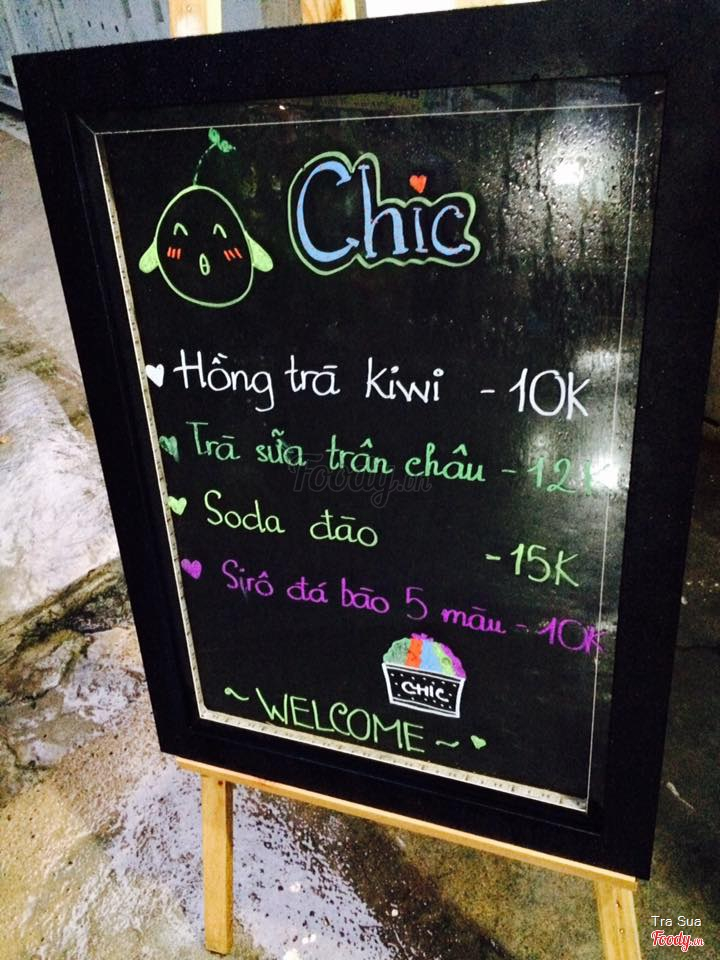 Chic
Hồng trà kiwi - 10K
Trà sữa trân châu - 12K
Foody.vn
Soda đào - 15K
Sirô đá bào 5 màu - 10K
CHIC
~ WELCOME ~
Tra Sua
Foody.vn